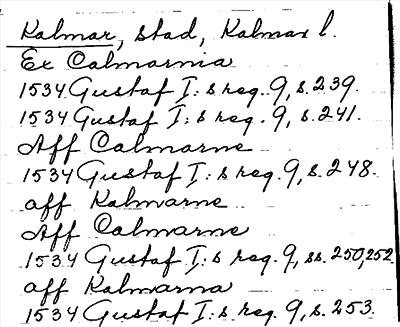 Kalmar, stad, Kalmar l.
Ex Calmarnia
1534 Gustaf I:s reg. 9, s. 239.
1534 Gustaf I:s reg. 9, s. 241.
Aff Calmarne
1534 Gustaf I:s reg. 9, s. 248.
aff Kalmarne
Aff Calmarne
1534 Gustaf I:s reg. 9, ss. 250,252
aff Kalmarna
1534 Gustaf I:s reg. 9, s. 253.